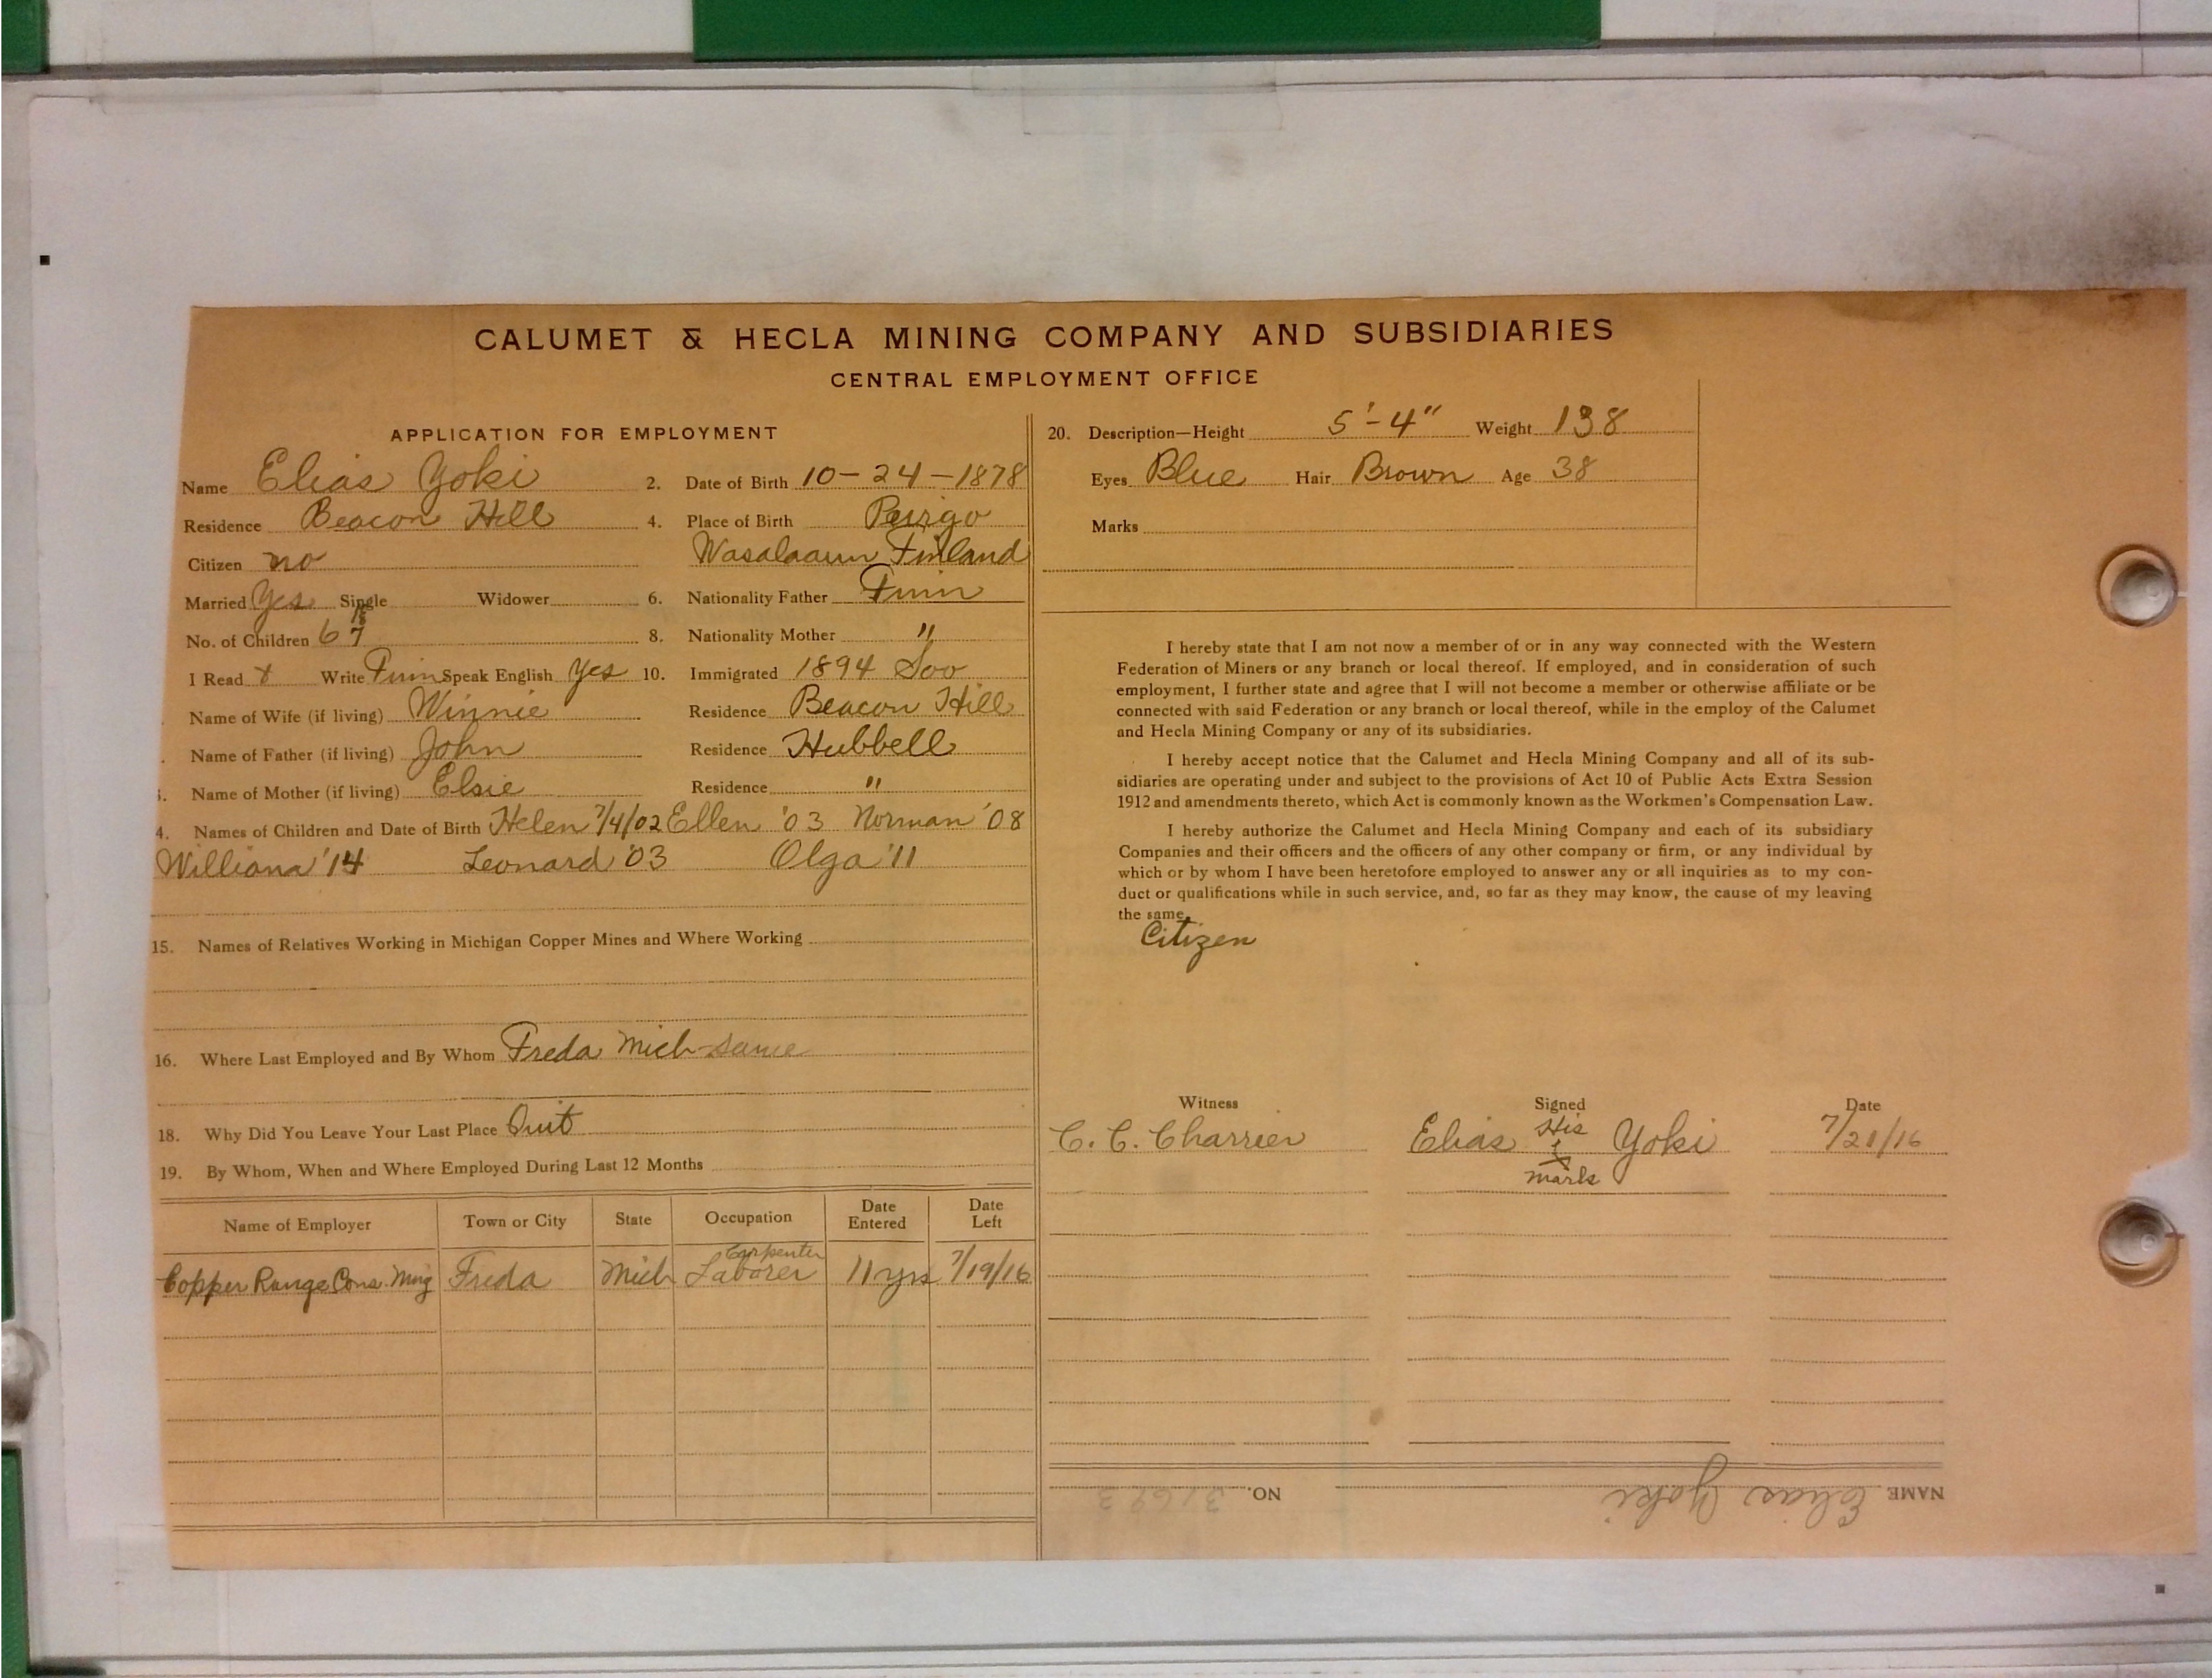 CALUMET & HECLA MINING COMPANY AND SUBSIDIARIES
CENTRAL EMPLOYMENT OFFICE
APPLICATION FOR EMPLOYMENT
Name Elias Yoki 2. Date of Birth 10-24-1878
Residence Beacon Hill 4. Place of Birth
Citizen no Finland
Married Yes Single Widower 6. Nationality Father Finn
No. of Children 6 7 8. Nationality Mother "
I Read Write Finn Speak English Yes 10. Immigrated 1894 Soo
Name of Wife (if living) Winnie Residence Beacon Hill
Name of Father (if living) John Residence Hubbell
Name of Mother (if living) Elsie Residence "
4. Names of Children and Date of Birth Helen 7/4/02 Ellen '03 Norman '08
'14 Leonard '03 Olga '11
15. Names of Relatives Working in Michigan Copper Mines and Where Working
16. Where Last Employed and By Whom Freda Mich same
18. Why Did You Leave Your Last Place Quit
19. By Whom, When and Where Employed During Last 12 Months
Name of Employer Town or City State Occupation Date Entered Date Left
Carpenter
Copper Range Cons. Mng Freda Mich Laborer 11 yrs 7/19/16
20. Description—Height 5'-4" Weight 138
Eyes Blue Hair Brown Age 38
Marks
I hereby state that I am not now a member of or in any way connected with the Western
Federation of Miners or any branch or local thereof. If employed, and in consideration of such
employment, I further state and agree that I will not become a member or otherwise affiliate or be
connected with said Federation or any branch or local thereof, while in the employ of the Calumet
and Hecla Mining Company or any of its subsidiaries.
I hereby accept notice that the Calumet and Hecla Mining Company and all of its sub-
sidiaries are operating under and subject to the provisions of Act 10 of Public Acts Extra Session
1912 and amendments thereto, which Act is commonly known as the Workmen's Compensation Law.
I hereby authorize the Calumet and Hecla Mining Company and each of its subsidiary
Companies and their officers and the officers of any other company or firm, or any individual by
which or by whom I have been heretofore employed to answer any or all inquiries as to my con-
duct or qualifications while in such service, and, so far as they may know, the cause of my leaving
the same.
Citizen
Witness Signed Date
C. C. Charrier Elias His X mark Yoki 7/21/16
NAME Elias Yoki NO. 31693